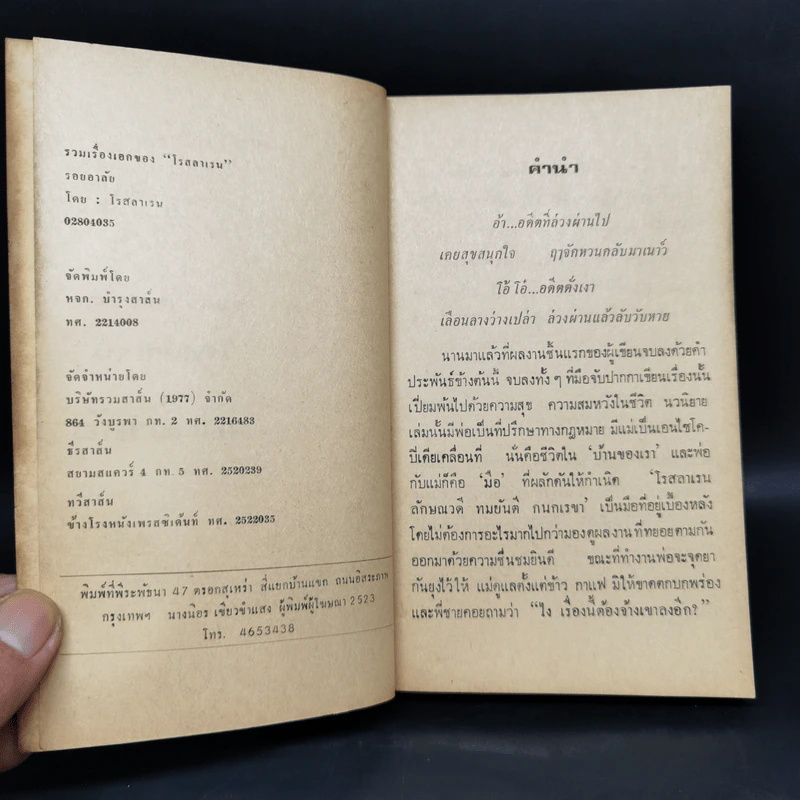 รวมเรื่องเอกของ "โรสลาเรน"
รอยอาลัย
โดย : โรสลาเรน
02804035
จัดพิมพ์โดย
หจก. บำรุงสาส์น
ทศ. 2214008
จัดจำหน่ายโดย
บริษัทรวมสาส์น (1977) จำกัด
864 วังบูรพา กท. 2 ทศ. 2216483
ธีรสาส์น
สยามสแควร์ 4 กท. 5 ทศ. 2520239
ทวีสาส์น
ข้างโรงหนังเพรสซิเด้นท์ ทศ. 2522035
พิมพ์ที่พีระพัธนา 47 ตรอกสุเหร่า สี่แยกบ้านแขก ถนนอิสระภาพ
กรุงเทพฯ นางนิอร เชี่ยวชำแสง ผู้พิมพ์ผู้โฆษณา 2523
โทร. 4653438
คำนำ
อ้า...อดีตที่ล่วงผ่านไป
เคยสุขสนุกใจ ฤๅจักหวนกลับมาเนาว์
โอ้ โอ๋...อดีตดั่งเงา
เลือนลางว่างเปล่า ล่วงผ่านแล้วลับวับหาย
นานมาแล้วที่ผลงานชิ้นแรกของผู้เขียนจบลงด้วยคำ
ประพันธ์ข้างต้นนี้ จบลงทั้ง ๆ ที่มือจับปากกาเขียนเรื่องนั้น
เปี่ยมพ้นไปด้วยความสุข ความสมหวังในชีวิต นวนิยาย
เล่มนั้นมีพ่อเป็นที่ปรึกษาทางกฎหมาย มีแม่เป็นเอนไซโค-
ปีเดียเคลื่อนที่ นั่นคือชีวิตใน 'บ้านของเรา' และพ่อ
กับแม่ก็คือ 'มือ' ที่ผลักดันให้กำเนิด 'โรสลาเรน
ลักษณวดี ทมยันตี กนกเรขา' เป็นมือที่อยู่เบื้องหลัง
โดยไม่ต้องการอะไรมากไปกว่ามองดูผลงาน ที่ทยอยตามกัน
ออกมาด้วยความชื่นชมยินดี ขณะที่ทำงานพ่อจะจุดยา
กันยุงไว้ให้ แม่ดูแลตั้งแต่ข้าว กาแฟ มิให้ขาดตกบกพร่อง
และพี่ชายคอยถามว่า "ไง เรื่องนี้ต้องจ้างเขาลงอีก?"